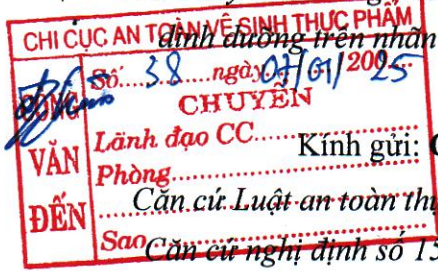 CHI CỤC AN TOÀN VỆ SINH THỰC PHẨM
dinh dưỡng trên nhãn
CÔNG VĂN ĐẾN
Số: 38 ngày 07/01/2025
CHUYỂN
Lãnh đạo CC
Kính gửi:
Phòng
Căn cứ Luật an toàn
Sao
Căn cứ nghị định số 15